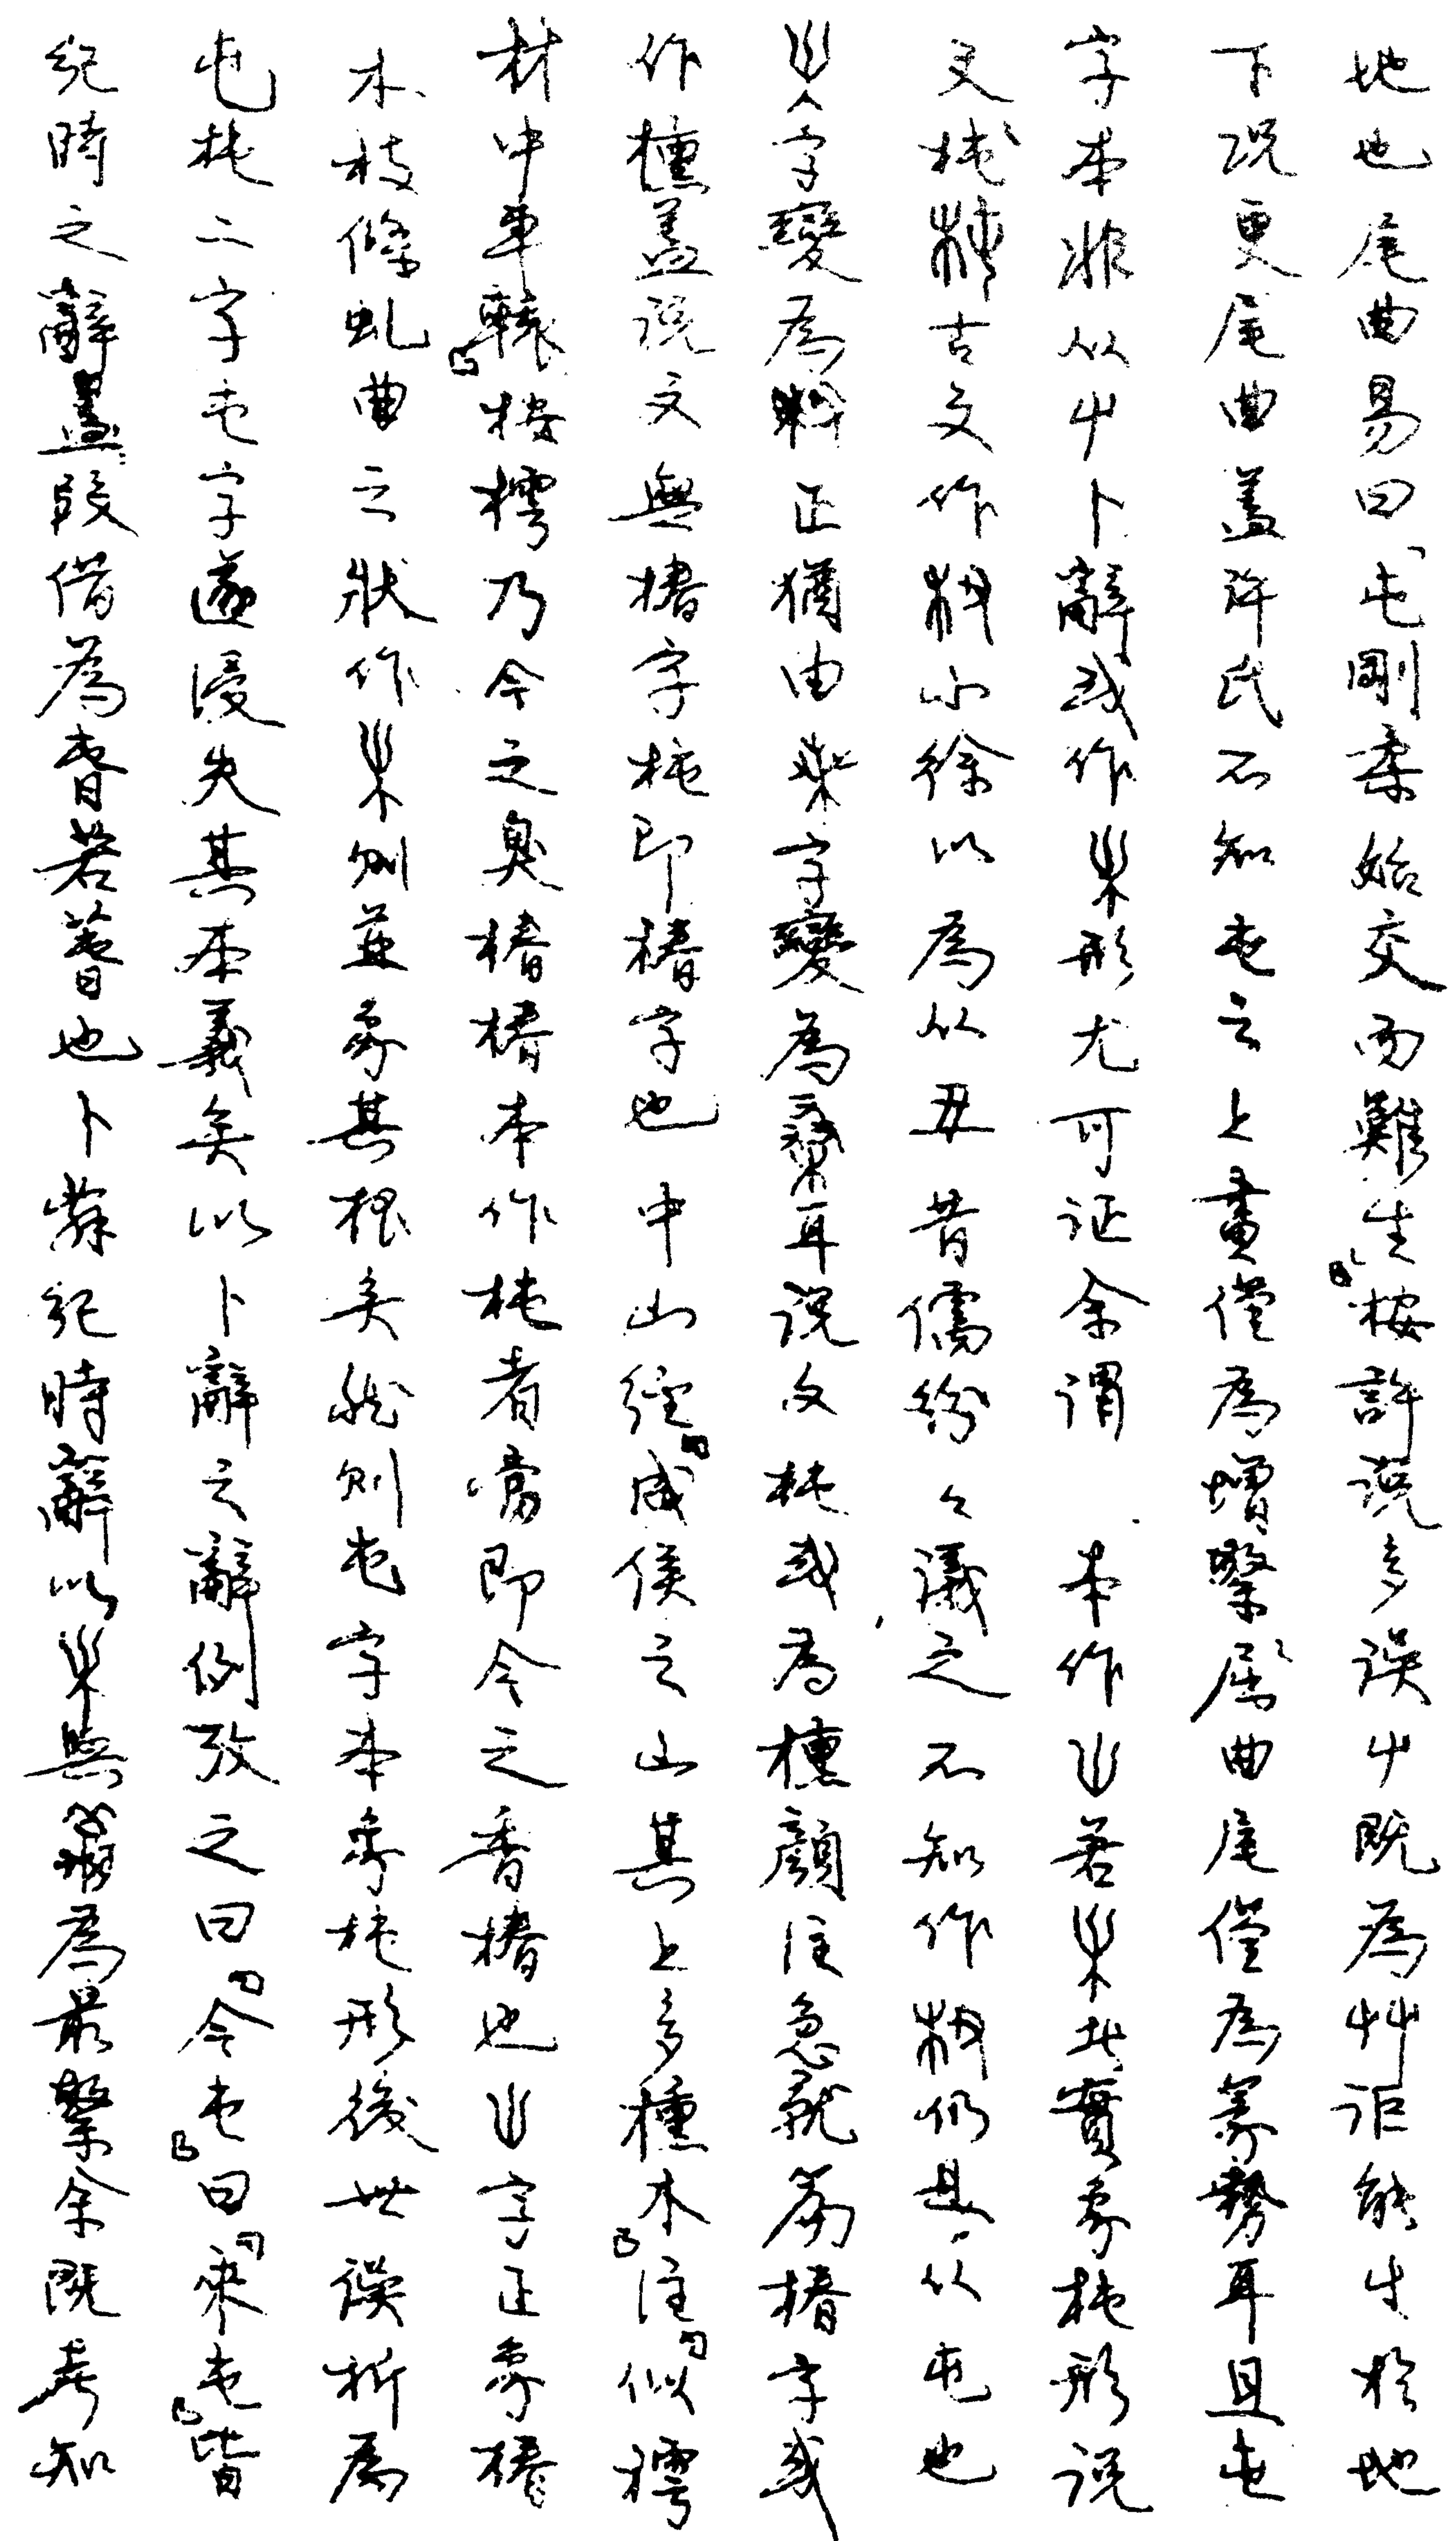 地也尾曲易曰「屯剛柔始交而難生」桉許說多誤屮既為艸詎能生於地
下況更尾曲蓋許氏不知屯之上畫僅為增繁屈曲尾僅為篆勢耳且屯
字本非从屮卜辭或作形尤可証余謂本作若此實象杶形說
文杶古文作杻小徐以為从丑昔儒紛々議之不知作杻仍是从屯也
字變為正猶由字變為桑耳說文杶或為櫄顏注急就篇椿字或
作櫄蓋說文無椿字杶即椿字也中山經「成侯之山其上多櫄木」注「似樗
材中車轅」桉樗乃今之臭椿椿本作杶者當即今之香椿也字正象椿
木枝條虬曲之狀作則並象其根矣然則屯字本象杶形後世誤析為
屯杶二字屯字遂湮失其本義矣以卜辭之辭例攷之曰「今屯」曰「來屯」皆
紀時之辭蓋叚借為旾若萅也卜辭紀時辭以與為最繁余既考知